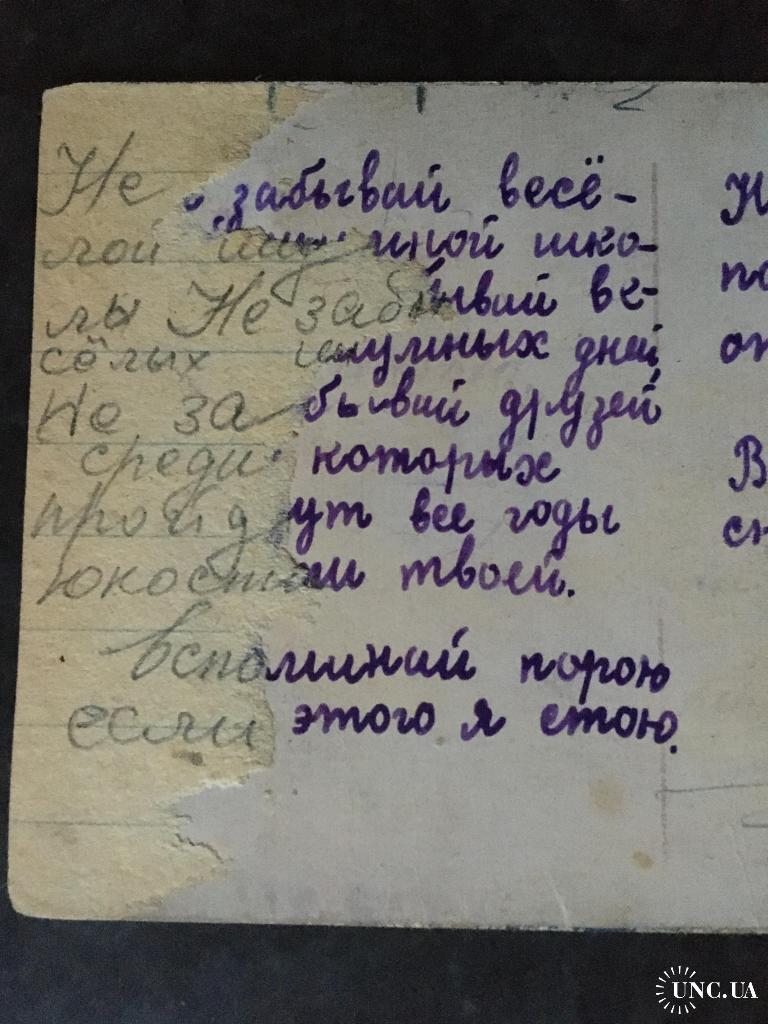 Не забывай весё-
лой шумной шко-
лы Не забывай ве-
сёлых шумных дней,
Не забывай друзей,
среди которых
пройдут все годы
юкости твоей.
вспоминай порою
если этого я стою.
UNC.UA